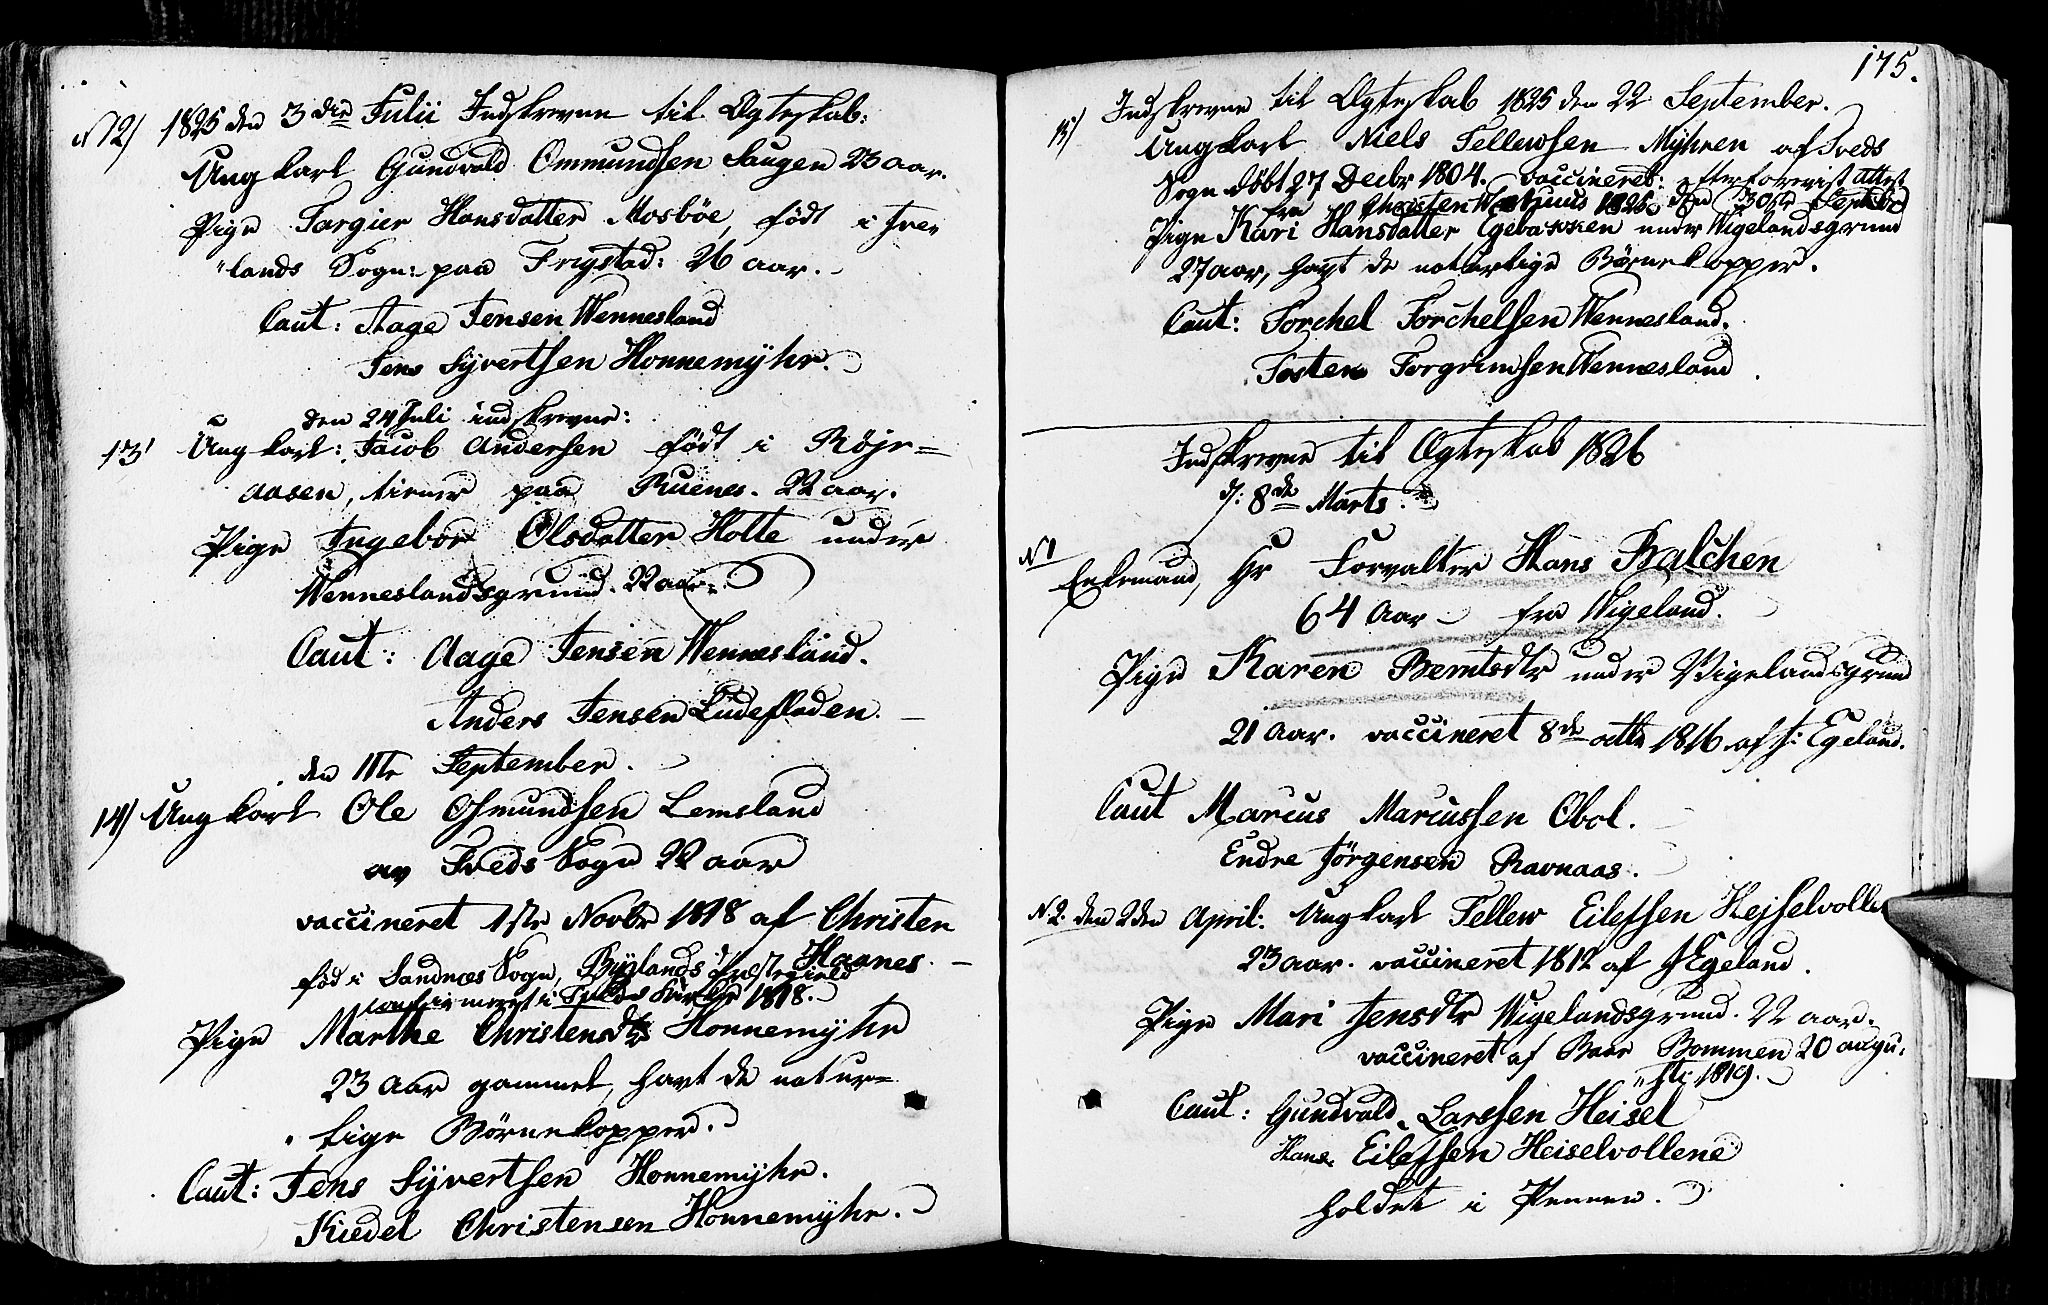 N 12) 1825 den 3die Julii Indskrevne til Ægteskab:
Ungkarl Gundvald Ommundsen Haugen 23 aar.
Pige Targier Hansdatter Mosböe, född i Ive-
"lands Sogn: paa Frigstad: 26 aar.
Caut: Aage Jensen Wennesland
Jens Syvertsen Honnemÿhr.
den 24 Juli indskrevne:
13) Ungkarl: Jacob Andersen född i Röjr=
aasen, tiener paa Ruenes. 22 aar.
Pige Ingebor Olsdatter Holte under
Wenneslandsgrund. 22 aar.
Caut: Aage Jensen Wennesland.
Anders Jensen Ludefladen.
den 11te September.
14) Ungkarl Ole Osmundsen Lemsland
av Iveds Sogn 22 aar
vaccineret 1ste Novbr 1818 af Christen
Haanes
föd i Sandnæs Sogn, Byglands Præstegield
confirmeret i Kirke 1818.
Pige Marthe Christensdtr Honnemÿhr
23 Aar gammel, havt de natur=
lige Börnekopper.
Caut: Jens Sÿvertsen Honnemÿhr.
Kiedel Christensen Honnemÿhr.
175.
Indskrevne til Ægteskab 1825 den 22 September.
15) Ungkarl Niels Tellewsen Mÿhren af Iveds
Sogn döbt 27 Decbr 1804. vaccineret: efter forevist Attest
fra Christen 1825 den 30te Septebr
Pige Kari Hansdatter Egebakken under Wigelandsgrund
27 aar, havt de naturlige Börnekopper.
Caut: Torchel Torchelsen Wennesland.
Tosten Torgrimsen Wennesland.
Indskrevne til Ægteskab 1826
d: 8de Marts.
N 1 Enkemand, Hr Forvalter Hans Balchen
64 Aar fra Wigeland.
Pige Karen Berntsdtr under Vigelandsgrund
21 Aar. vaccineret 8de octbr 1816 af J: Egeland.
Caut Marcus Marcussen Obol.
Endre Jörgensen Ravnaas.
N 2. den 2den April: Ungkarl Tellew Eilefsen Hejselvollen
23 aar. vaccineret 1812 af J Egeland.
Pige Mari Jensdtr Wigelandsgrund. 22 aar.
vaccineret af Bommen 20 augu-
"sti 1819.
Caut: Gundvald Larssen Heisel
Hans Eilefsen Heiselvollene
holdet i Pennen.